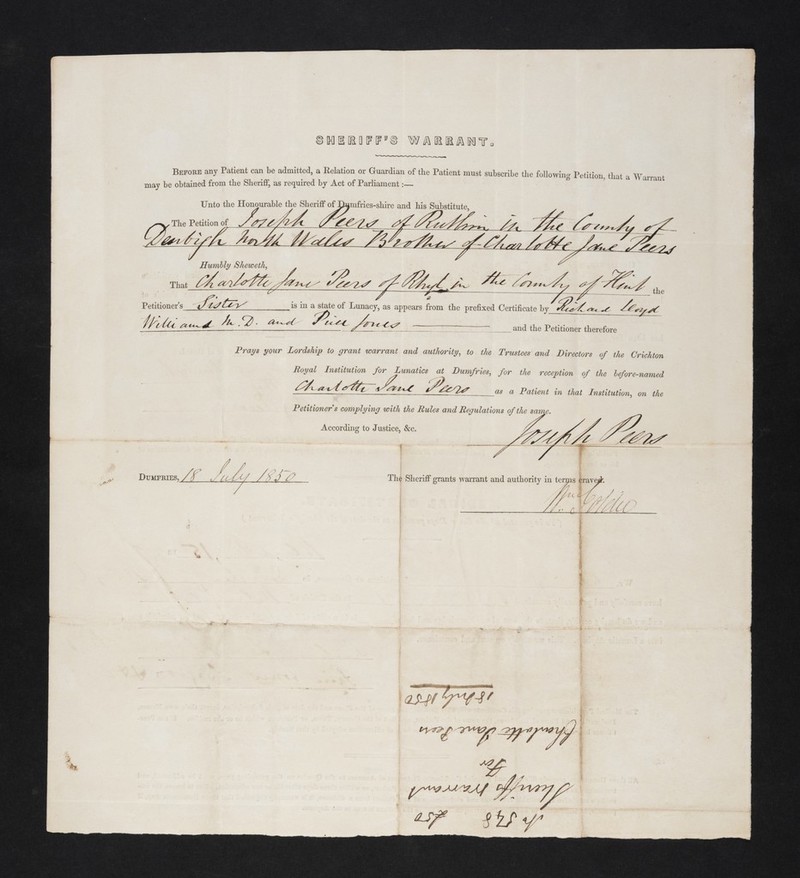 SHERIFF'S WARRANT.
BEFORE any Patient can be admitted, a Relation or Guardian of the Patient must subscribe the following Petition, that a Warrant
may be obtained from the Sheriff, as required by Act of Parliament :—
Unto the Honourable the Sheriff of Dumfries-shire and his Substitute,
The Petition of Joseph Peers of Ruthin in the County of
Denbigh North Wales Brother of Charlotte Jane Peers
Humbly Sheweth,
That Charlotte Jane Peers of Rhyl in the County of Flint the
Petitioner's Sister is in a state of Lunacy, as appears from the prefixed Certificate by Richard Lloyd
Williams M.D. and Jones and the Petitioner therefore
Prays your Lordship to grant warrant and authority, to the Trustees and Directors of the Crichton
Royal Institution for Lunatics at Dumfries, for the reception of the before-named
Charlotte Jane Peers as a Patient in that Institution, on the
Petitioner's complying with the Rules and Regulations of the same.
According to Justice, &c.
Joseph Peers
DUMFRIES, 18 July 1850
The Sheriff grants warrant and authority in terms craved.
Goldie
N 548 £50
Sheriffs Warrant
For
Charlotte Jane Peers
18 July 1850